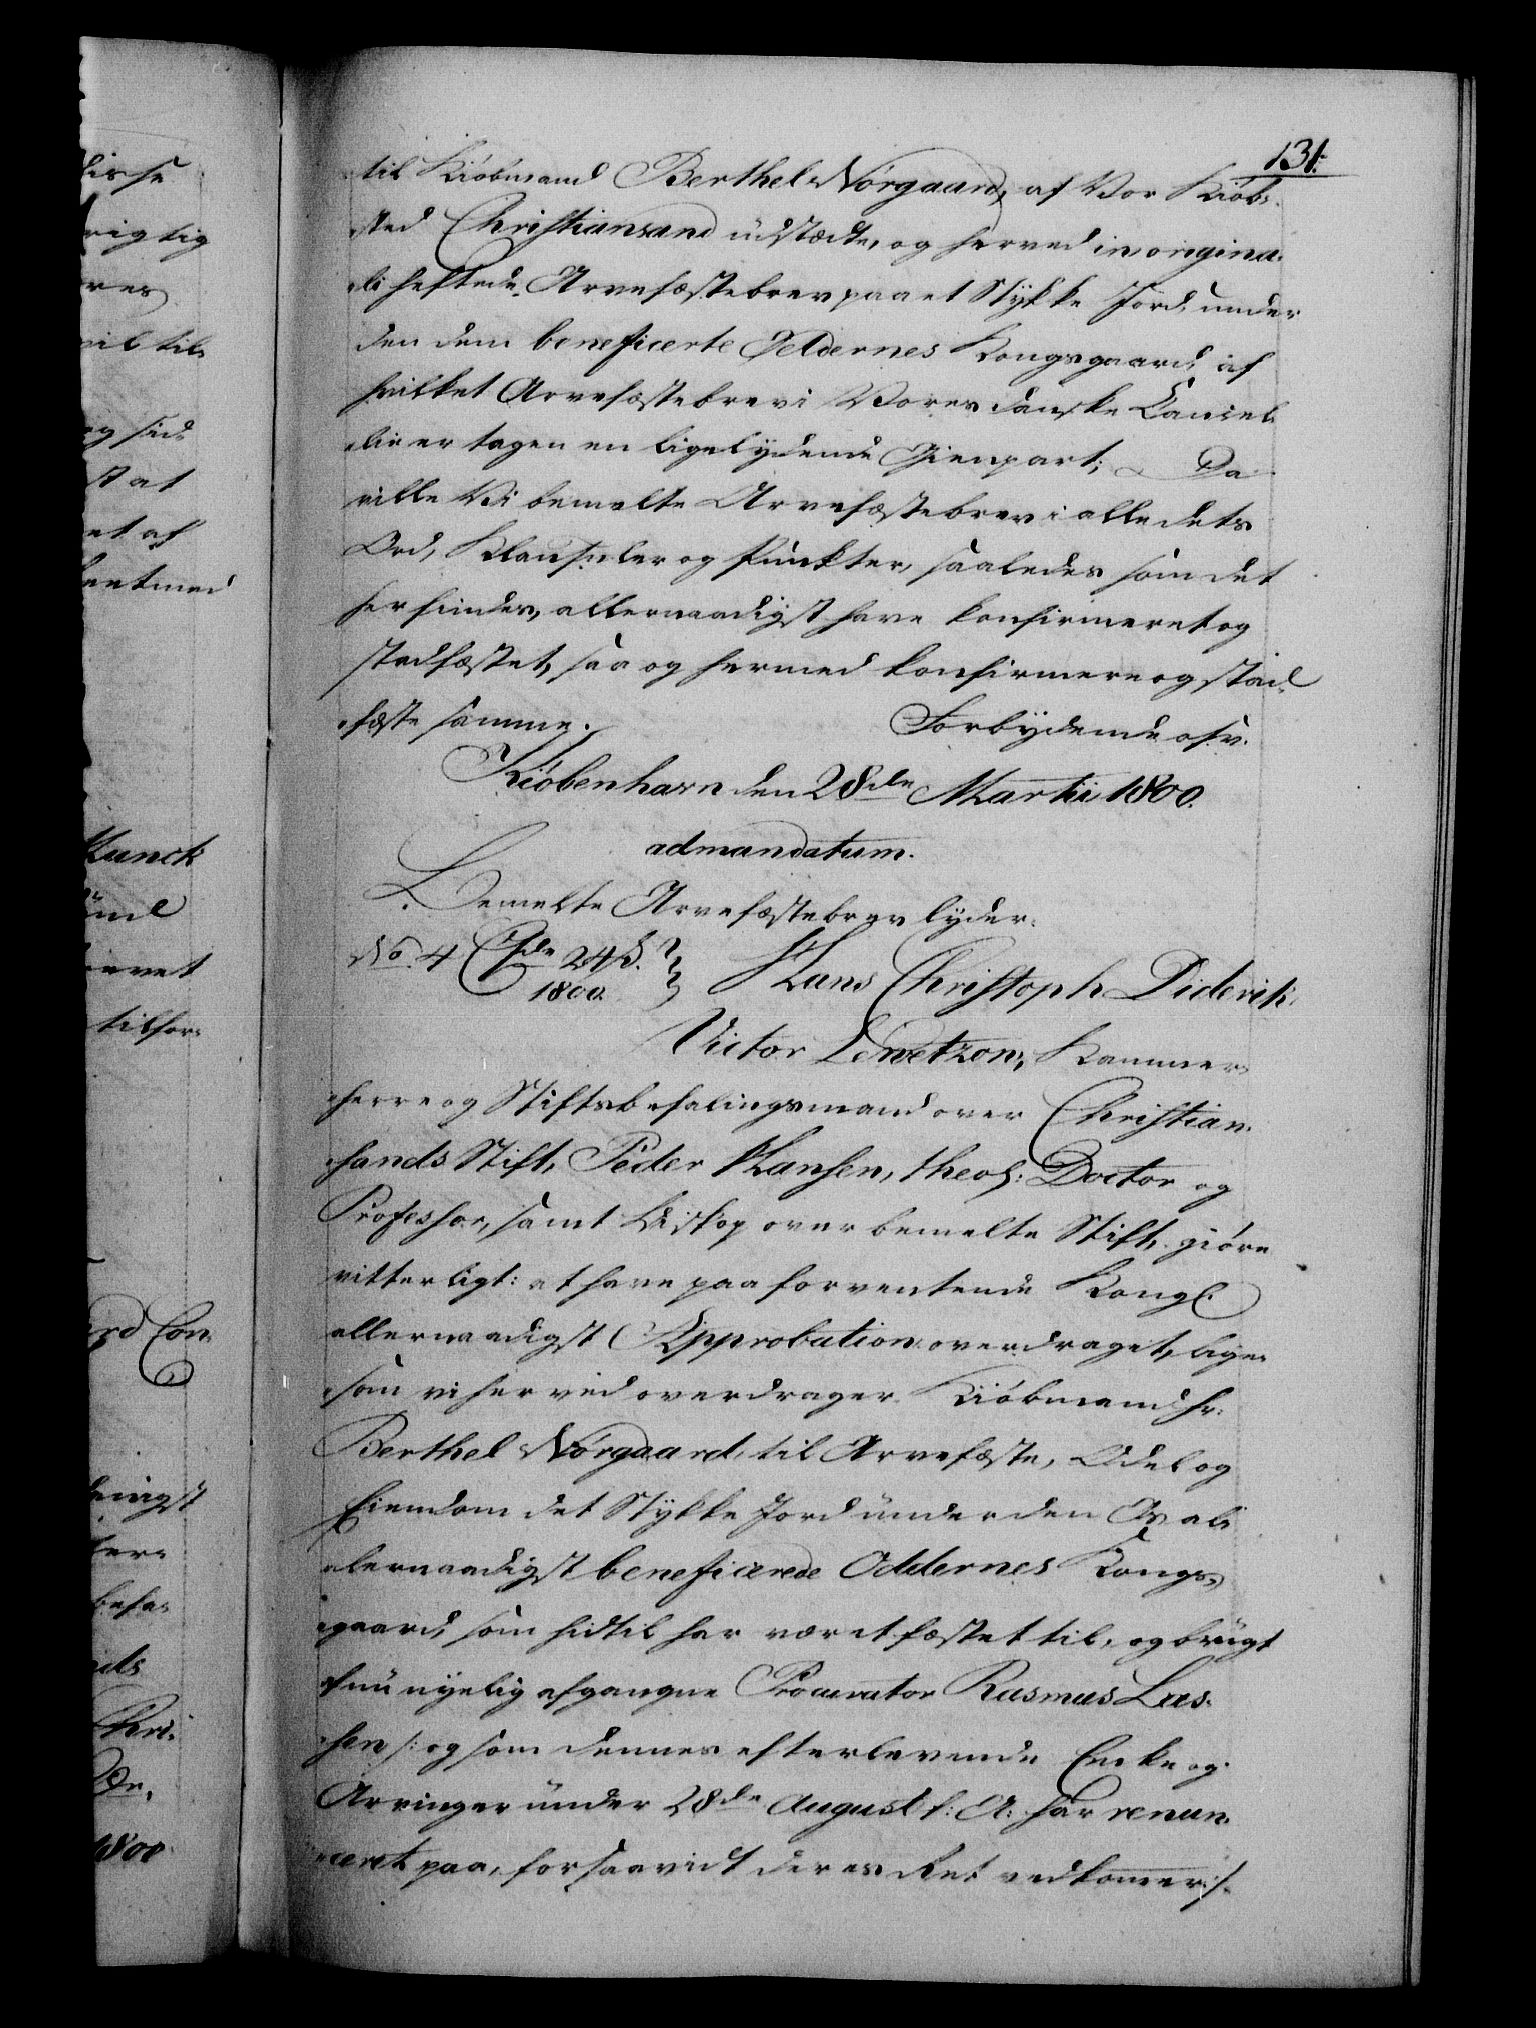 131.
til Kiöbmand Berthel Nörgaard, af Vor Kiöb-
sted Christiansand udstædte, og herved in origina-
li heftede Arvefæstebrev paa et Stykke Jord, under
den dem beneficerte Oddernes Kongsgaard, af
hvilket Arvefæstebrev i Vores danske Cancel-
lie er tagen en ligelydende Gienpart; Da
ville Vi bemelte Arvefæstebrev i alle dets
Ord, Klausuler og Punkter, saaledes som det
her findes, allernaadigst have konfirmeret og
stadfæstet, saa og hermed konfirmere og stad-
fæste samme. Forbydende osv.
Kiöbenhavn den 28de Martii 1800.
ad mandatum.
Bemelte Arvefæstebrev lyder.
No. 4 24 s.
1800. Hans Christoph Diderik
Victor Levetzon, Kammer-
herre og Stiftsbefalingsmand over Christian-
sands Stift, Peder Hansen, theol: Doctor og
Professor, samt Biskop over bemelte Stift, giöre
vitterligt: at have paa forventende Kongl.
allernaadigst Approbation overdraget, lige-
som vi herved overdrager Kiöbmand Hr.
Berthel Nörgaard, til Arvefæste, Odel og
Eiendom det Stykke Jord under den os al-
lernaadigst beneficerede Oddernes Kongs-
gaard, som hidtil har været fæstet til, og brugt
af nu nyelig afgangne Procurator Rasmus Las-
sen /: og som dennes efterlevende Encke og
Arvinger under 28de August f: A: har renun-
ceret paa, forsaavidt deres Ret vedkommer :/